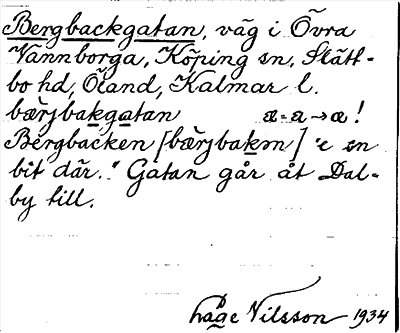 Bergbackgatan, väg i Övra
Vannborga, Köping sn, Slätt-
bo hd, Öland, Kalmar l.
bærjbakgatan æ-a→æ!
Bergbacken [bærjbakm] "e en
bit där." Gatan går åt Dal-
by till.
Åge Nilsson 1934